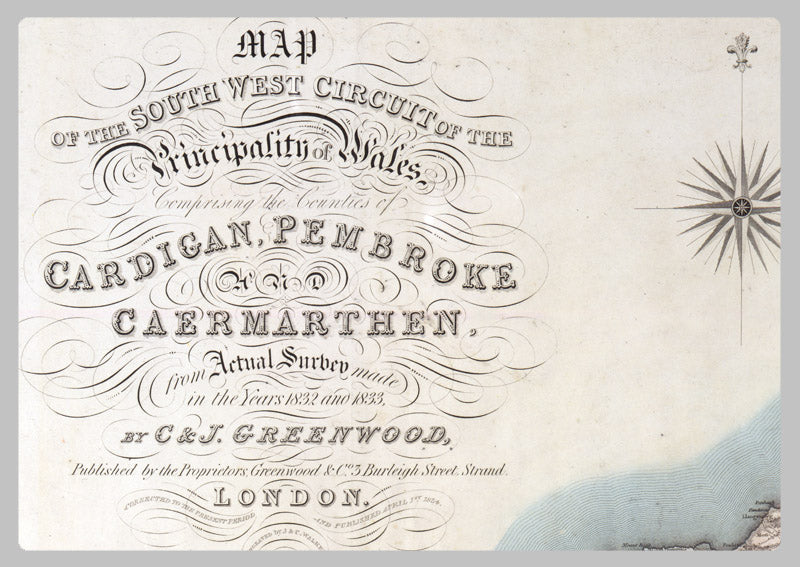 MAP
OF THE SOUTH WEST CIRCUIT OF THE
Principality of Wales,
Comprising the Counties of
CARDIGAN, PEMBROKE
AND
CAERMARTHEN,
from Actual Survey made
in the Years 1832 and 1833,
BY C & J. GREENWOOD,
Published by the Proprietors, Greenwood & Co. 3 Burleigh Street, Strand.
LONDON.
CORRECTED TO THE PRESENT PERIOD AND PUBLISHED APRIL 1st 1834.